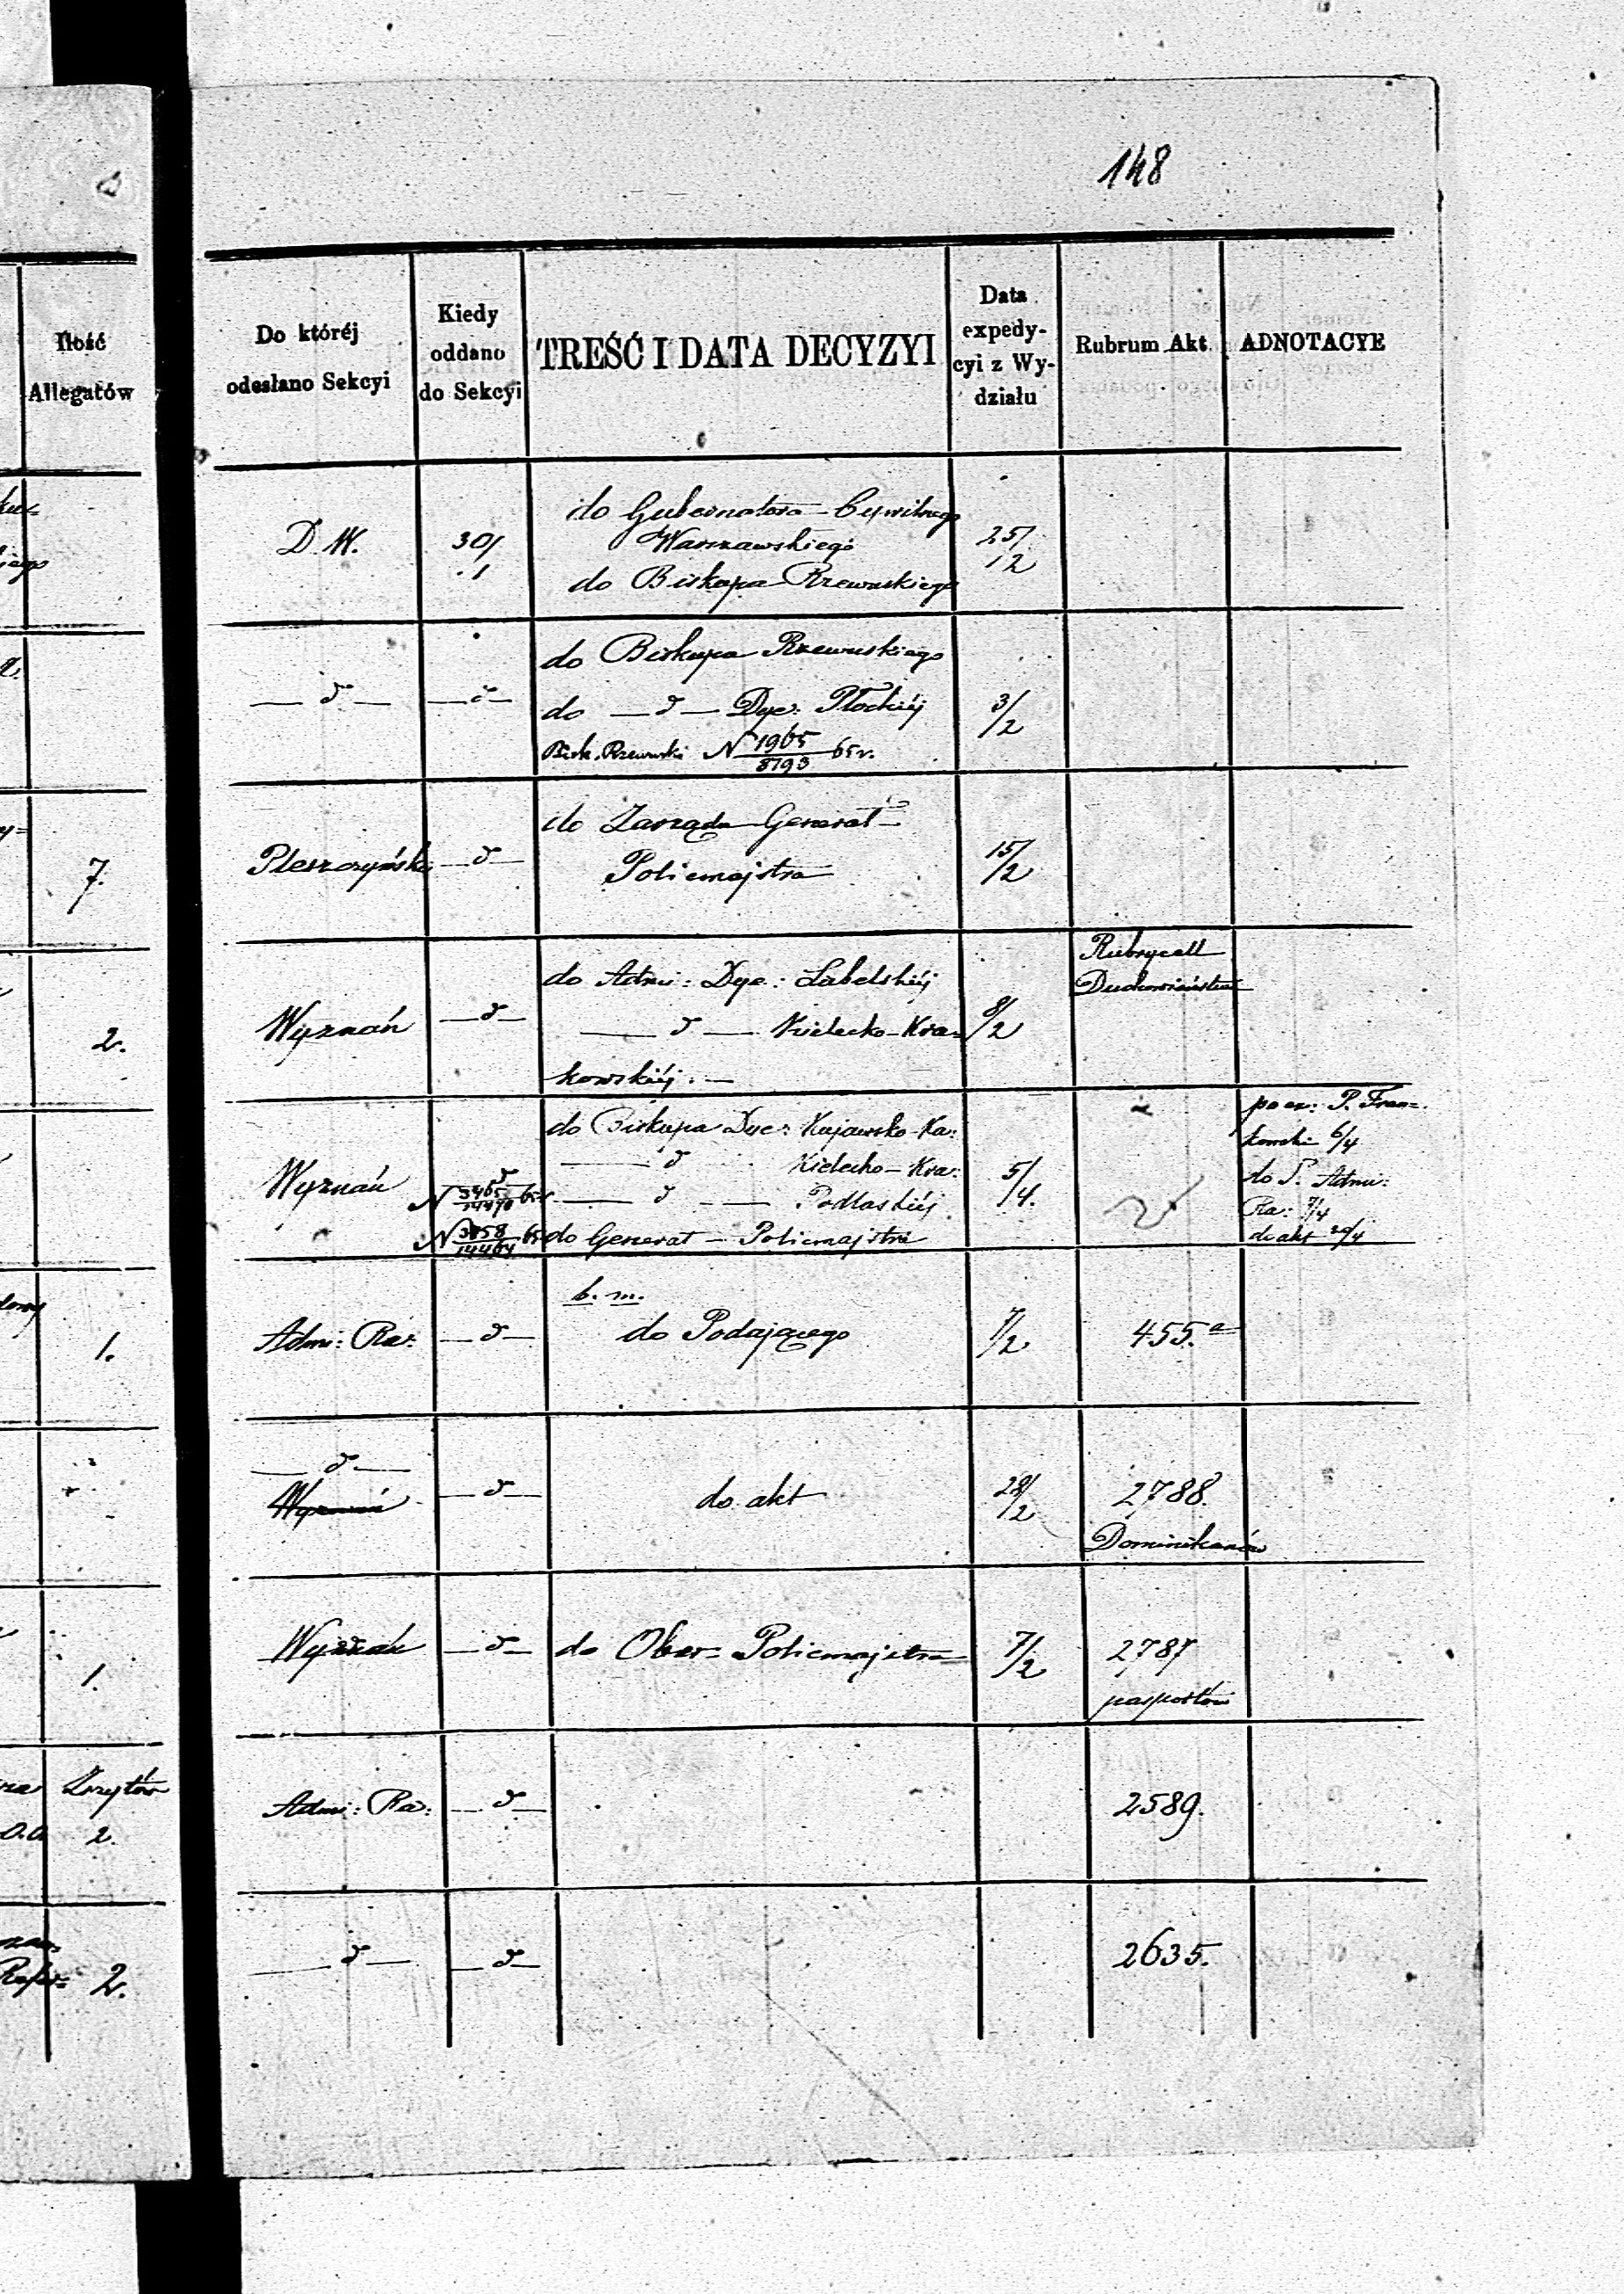 148
Ilość
Allegatów
Do któréj
odesłano Sekcyi
Kiedy
oddano
do Sekcyi
TREŚĆ I DATA DECYZYI
Data
expedy-
cyi z Wy-
działu
Rubrum Akt
ADNOTACYE
D. W.
30/1
do Gubernatora Cywilnego
Warszawskiego
do Biskupa Rzewuskiego
25/12
— d —
— d —
do Biskupa Rzewuskiego
do — d — Dyec: Płockiéj
Bisk. Rzewuski N 1965/8793 65 r.
3/2
7.
Pleszczyński
— d —
do Zarządu Generał
Policmajstra
15/2
2.
Wyznań
— d —
do Admi: Dyec: Lubelskiéj
— d — Kielecko-Kra=
kowskiéj. —
8/2
Rubrycell
Duchowieństwa
Wyznań
d
N 3465/14470 65 r.
N 3458/14464 65
do Biskupa Dyec: Kujawsko-Ka:
— d — Kielecko-Kra:
— d — Podlaskiéj
do Generał - Policmajstra
5/4.
po ex: P. Fran=
kowski 6/4
do P. Admi:
Ra: 7/4
do akt 20/4
1.
Admi: Ra:
— d —
b. m.
do Podającego
7/2
455.a
— d —
Wyznań
— d —
do akt
28/2
2788.
Dominikanów
1.
Wyznań
— d —
do Ober-Policmajstra
7/2
2787
paszportów
Zszytów
2.
Admi: Ra:
— d —
2589.
2.
— d —
— d —
2635.